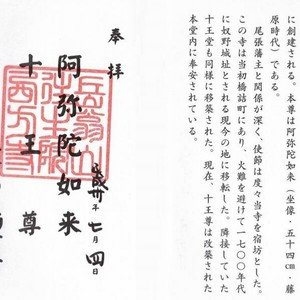 に創建される。本尊は阿弥陀如来（坐像・五十四㎝・藤
原時代）である。
尾張藩主と関係が深く、使節は度々当寺を宿坊とした。
この寺は当初橋詰町にあり、火難を避けて一七〇〇年代
に奴野城址とされる現今の地に移転した。隣接していた
十王堂も同様に移築された。現在、十王尊は改築された
本堂内に奉安されている。
平成卅年七月四日
阿弥陀如来
十王尊
奉拝